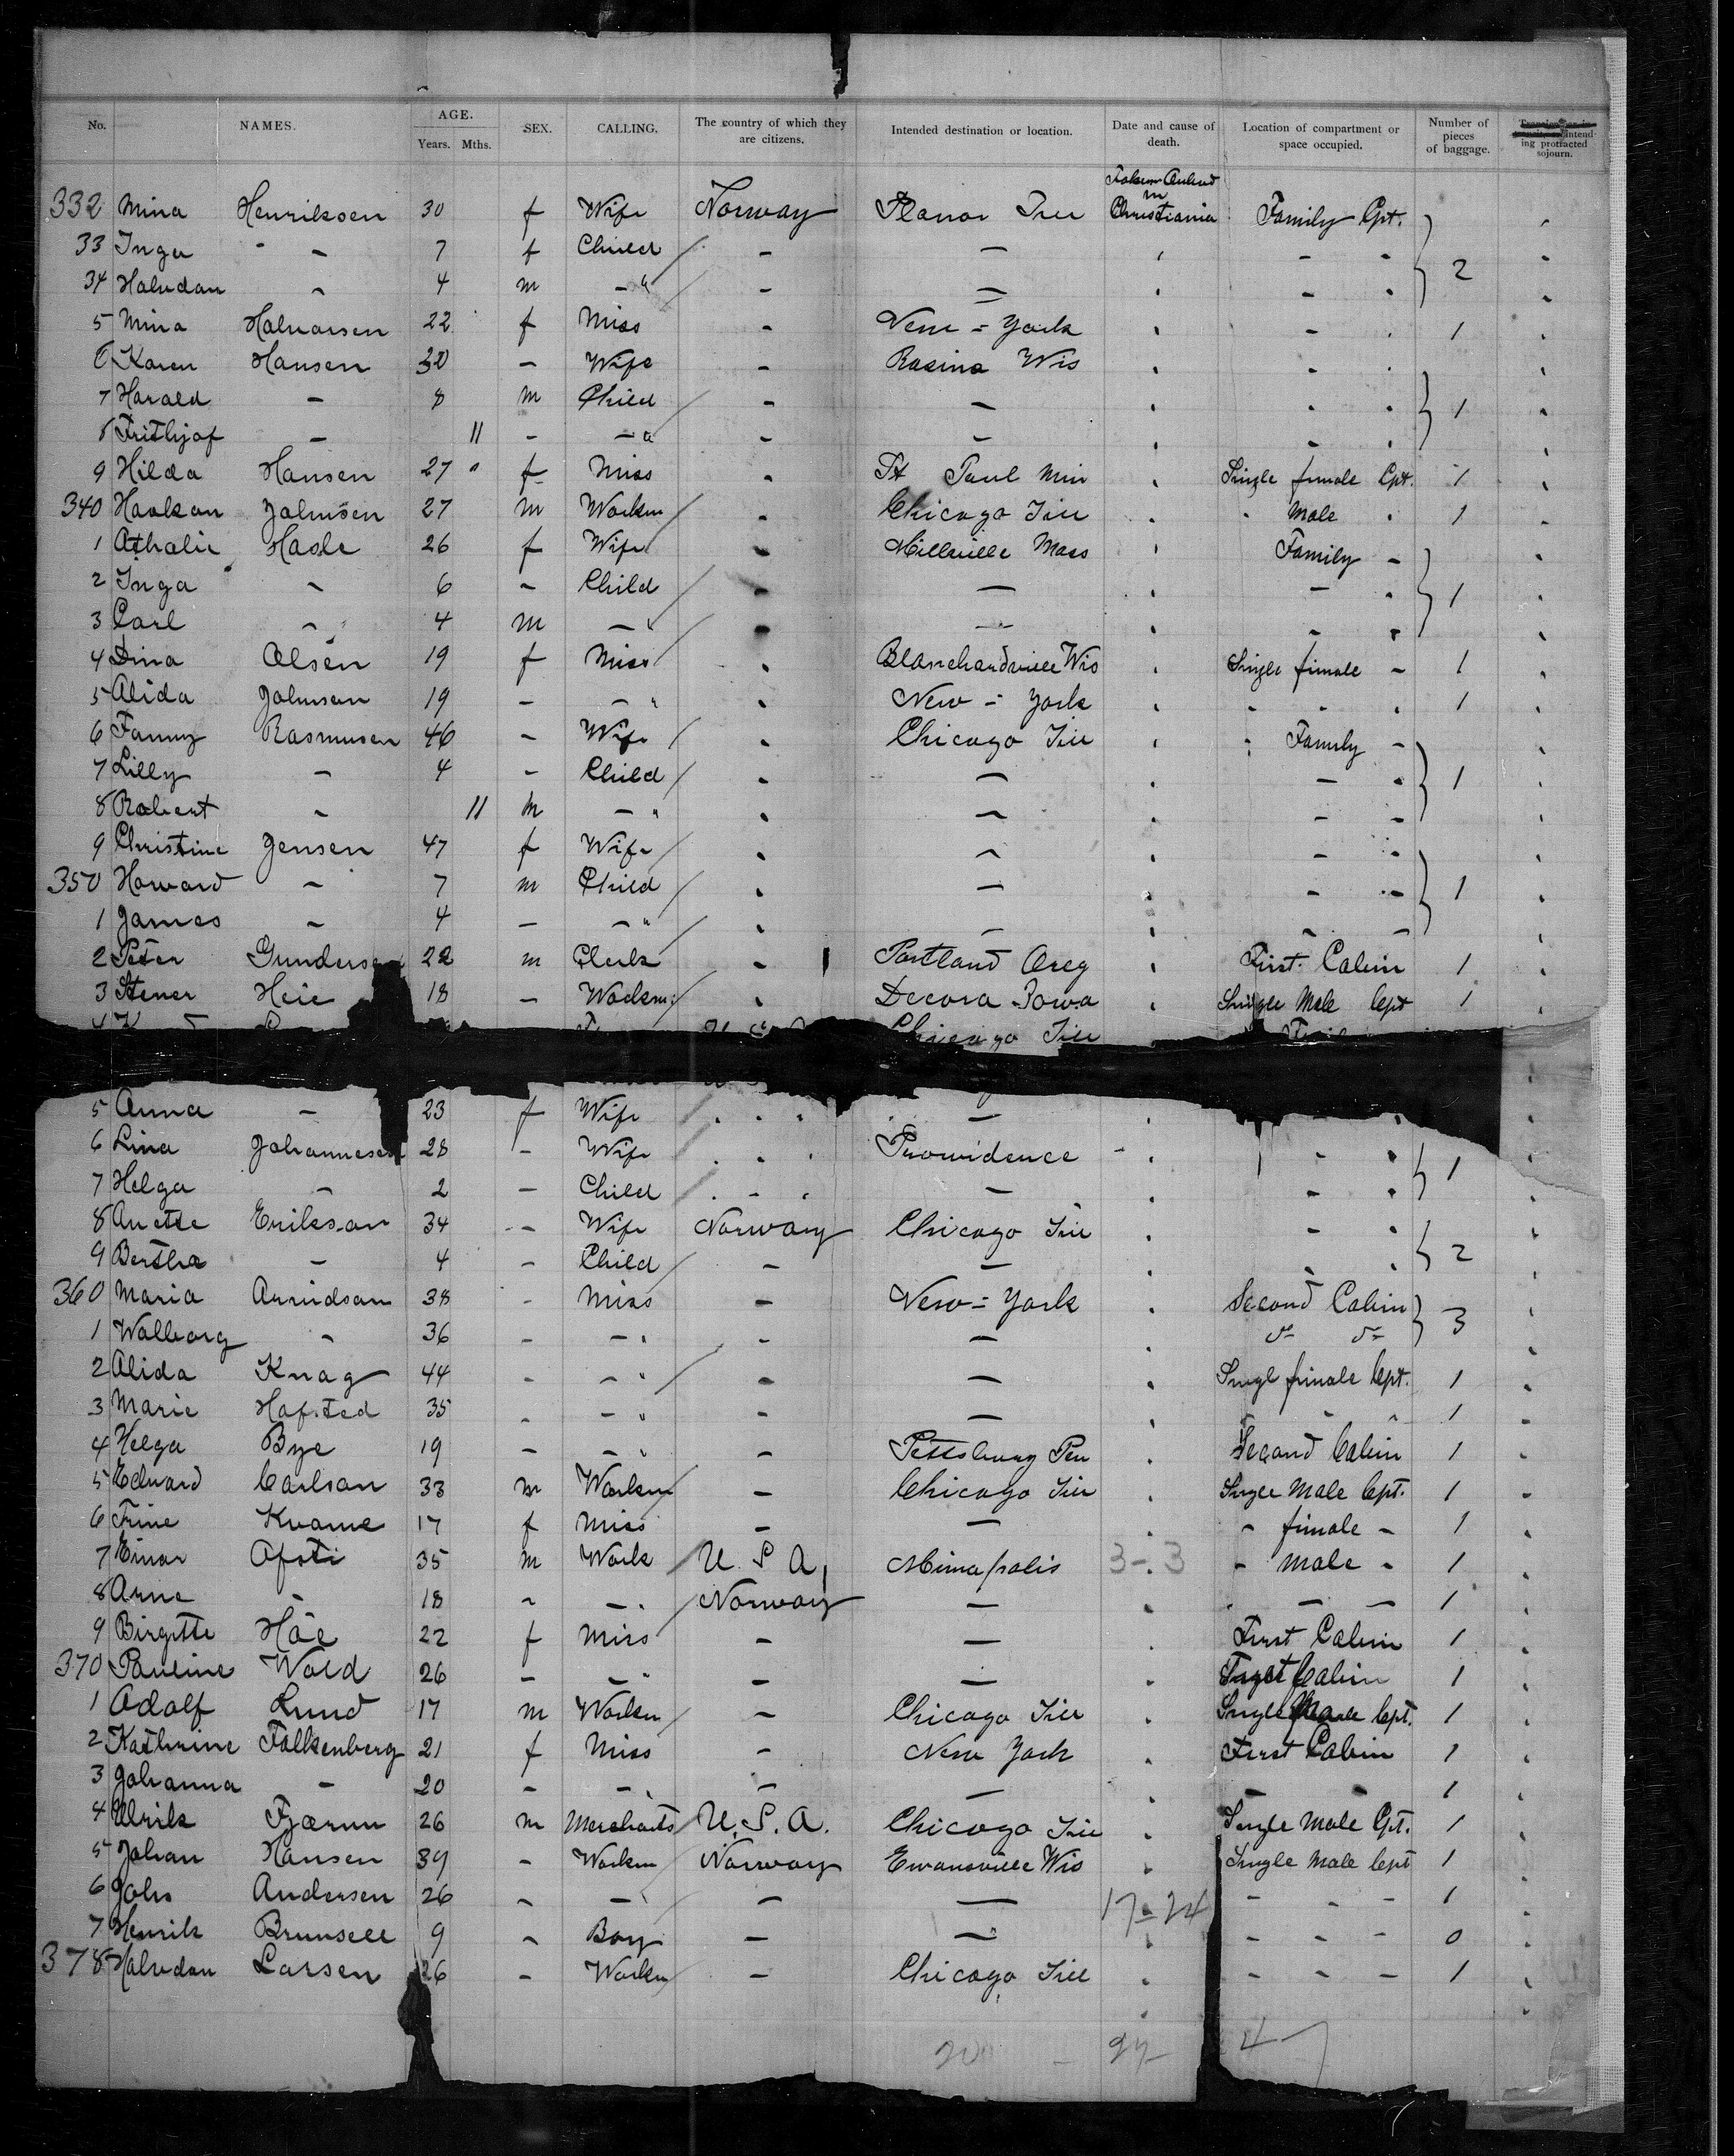 No. NAMES. AGE. Years. Mths. SEX. CALLING. The country of which they are citizens. Intended destination or location. Date and cause of death. Location of compartment or space occupied. Number of pieces of baggage. intending protracted sojourn.
332 Mina Henriksen 30 f Wife Norway Planor Ill Christiania Family Cpt.
33 Inga - - 7 f Child - - - -
34 Halvdan - 4 m - " - - - - 2
5 Mina Halvorsen 22 f Miss - New = York - 1
6 Karen Hansen 30 - Wife - Rasina Wis
7 Harald - 8 m Child - - 1
8 Frithjof - 11 - - " - - -
9 Hilda Hansen 27 f Miss St Paul Min Single female Cpt. 1
340 Haakon Johnsen 27 m Workm Chicago Ill " Male 1
1 Athalie Hasle 26 f Wife Millville Mass Family -
2 Inga - 6 - Child - - - 1
3 Carl - 4 m - " - - -
4 Dina Olsen 19 f Miss Blanchardville Wis Single female - 1
5 Alida Johnson 19 - - " New = York 1
6 Fanny Rasmusen 46 - Wife Chicago Ill Family -
7 Lilly - 4 - Child - - - - 1
8 Robert - 11 m - " - - -
9 Christine Jensen 47 f Wife - - -
350 Howard - 7 m Child - - - 1
1 James - 4 - - " - - -
2 Peter Gundersen 22 m Clerk - Portland Oreg First Cabin 1
3 Stener Heie 18 - Workm Decora Iowa Single Male Cpt 1
Chicago Ill
5 Anna - 23 f Wife - -
6 Lina Johannesen 28 - Wife Providence - - 1
7 Helga - 2 - Child - - -
8 Anette Erikson 34 - Wife Norway Chicago Ill -
9 Bertha - 4 - Child - - 2
360 Maria Arvidson 38 - Miss - New = York Second Cabin 3
1 Walborg - 36 - - " - -
2 Alida Knag 44 - - " - - Singl female Cpt. 1
3 Marie Hafsted 35 - - " - - - - 1
4 Helga Bye 19 - - " - Pettsburg Pen Second Cabin 1
5 Edward Carlson 33 m Workm - Chicago Ill Single Male Cpt. 1
6 Trine Kvame 17 f Miss - - - female - 1
7 Einar Afsti 35 m Work U. S. A. Minnapolis 3-3 - male - 1
8 Arne - 18 - - " Norway - - - 1
9 Birgitte Häe 22 f Miss - - First Cabin 1
370 Pauline Wold 26 - - " - - First Cabin 1
1 Adolf Lund 17 m Workm - Chicago Ill Single Male Cpt. 1
2 Kathrine Falkenberg 21 f Miss - New York First Cabin 1
3 Johanna - 20 - - " - - - - 1
4 Ulrik Fjærun 26 m Merchants U. S. A. Chicago Ill Single Male Cpt. 1
5 Johan Hansen 39 - Workm Norway Ewansville Wis Single Male Cpt 1
6 John Andersen 26 - - " - - 17-24 - - - 1
7 Henrik Brunsell 9 - Boy - - - - - 0
378 Halvdan Larsen 26 - Workm - Chicago Ill - - - 1
20 - 24 - 4